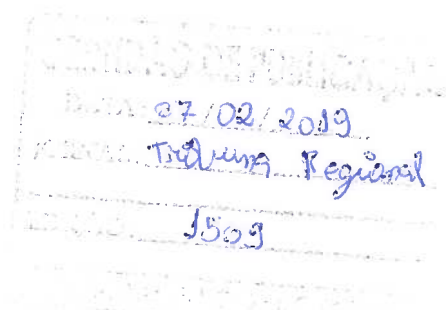 07/02/2019
Tribuna Regional
1509